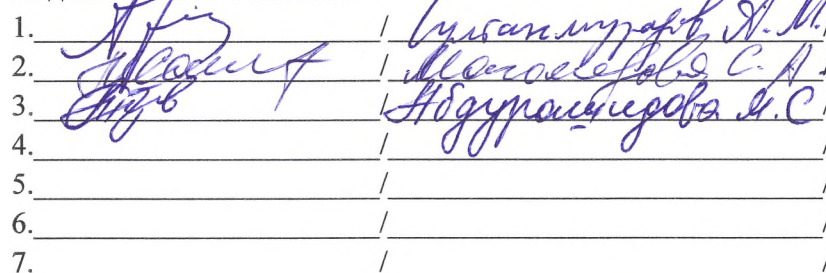 1. / Султанмурадов А.М. /
2. / Магомедова С.А. /
3. / Абдурашидова М.С /
4. / /
5. / /
6. / /
7. / /